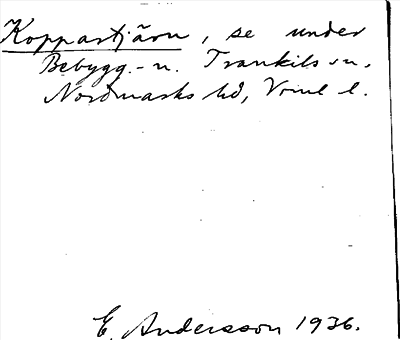 Koppartjärn, se under
Bebygg.-n. Trankils sn,
Nordmarks hd, Vrml l.
E. Andersson 1936.